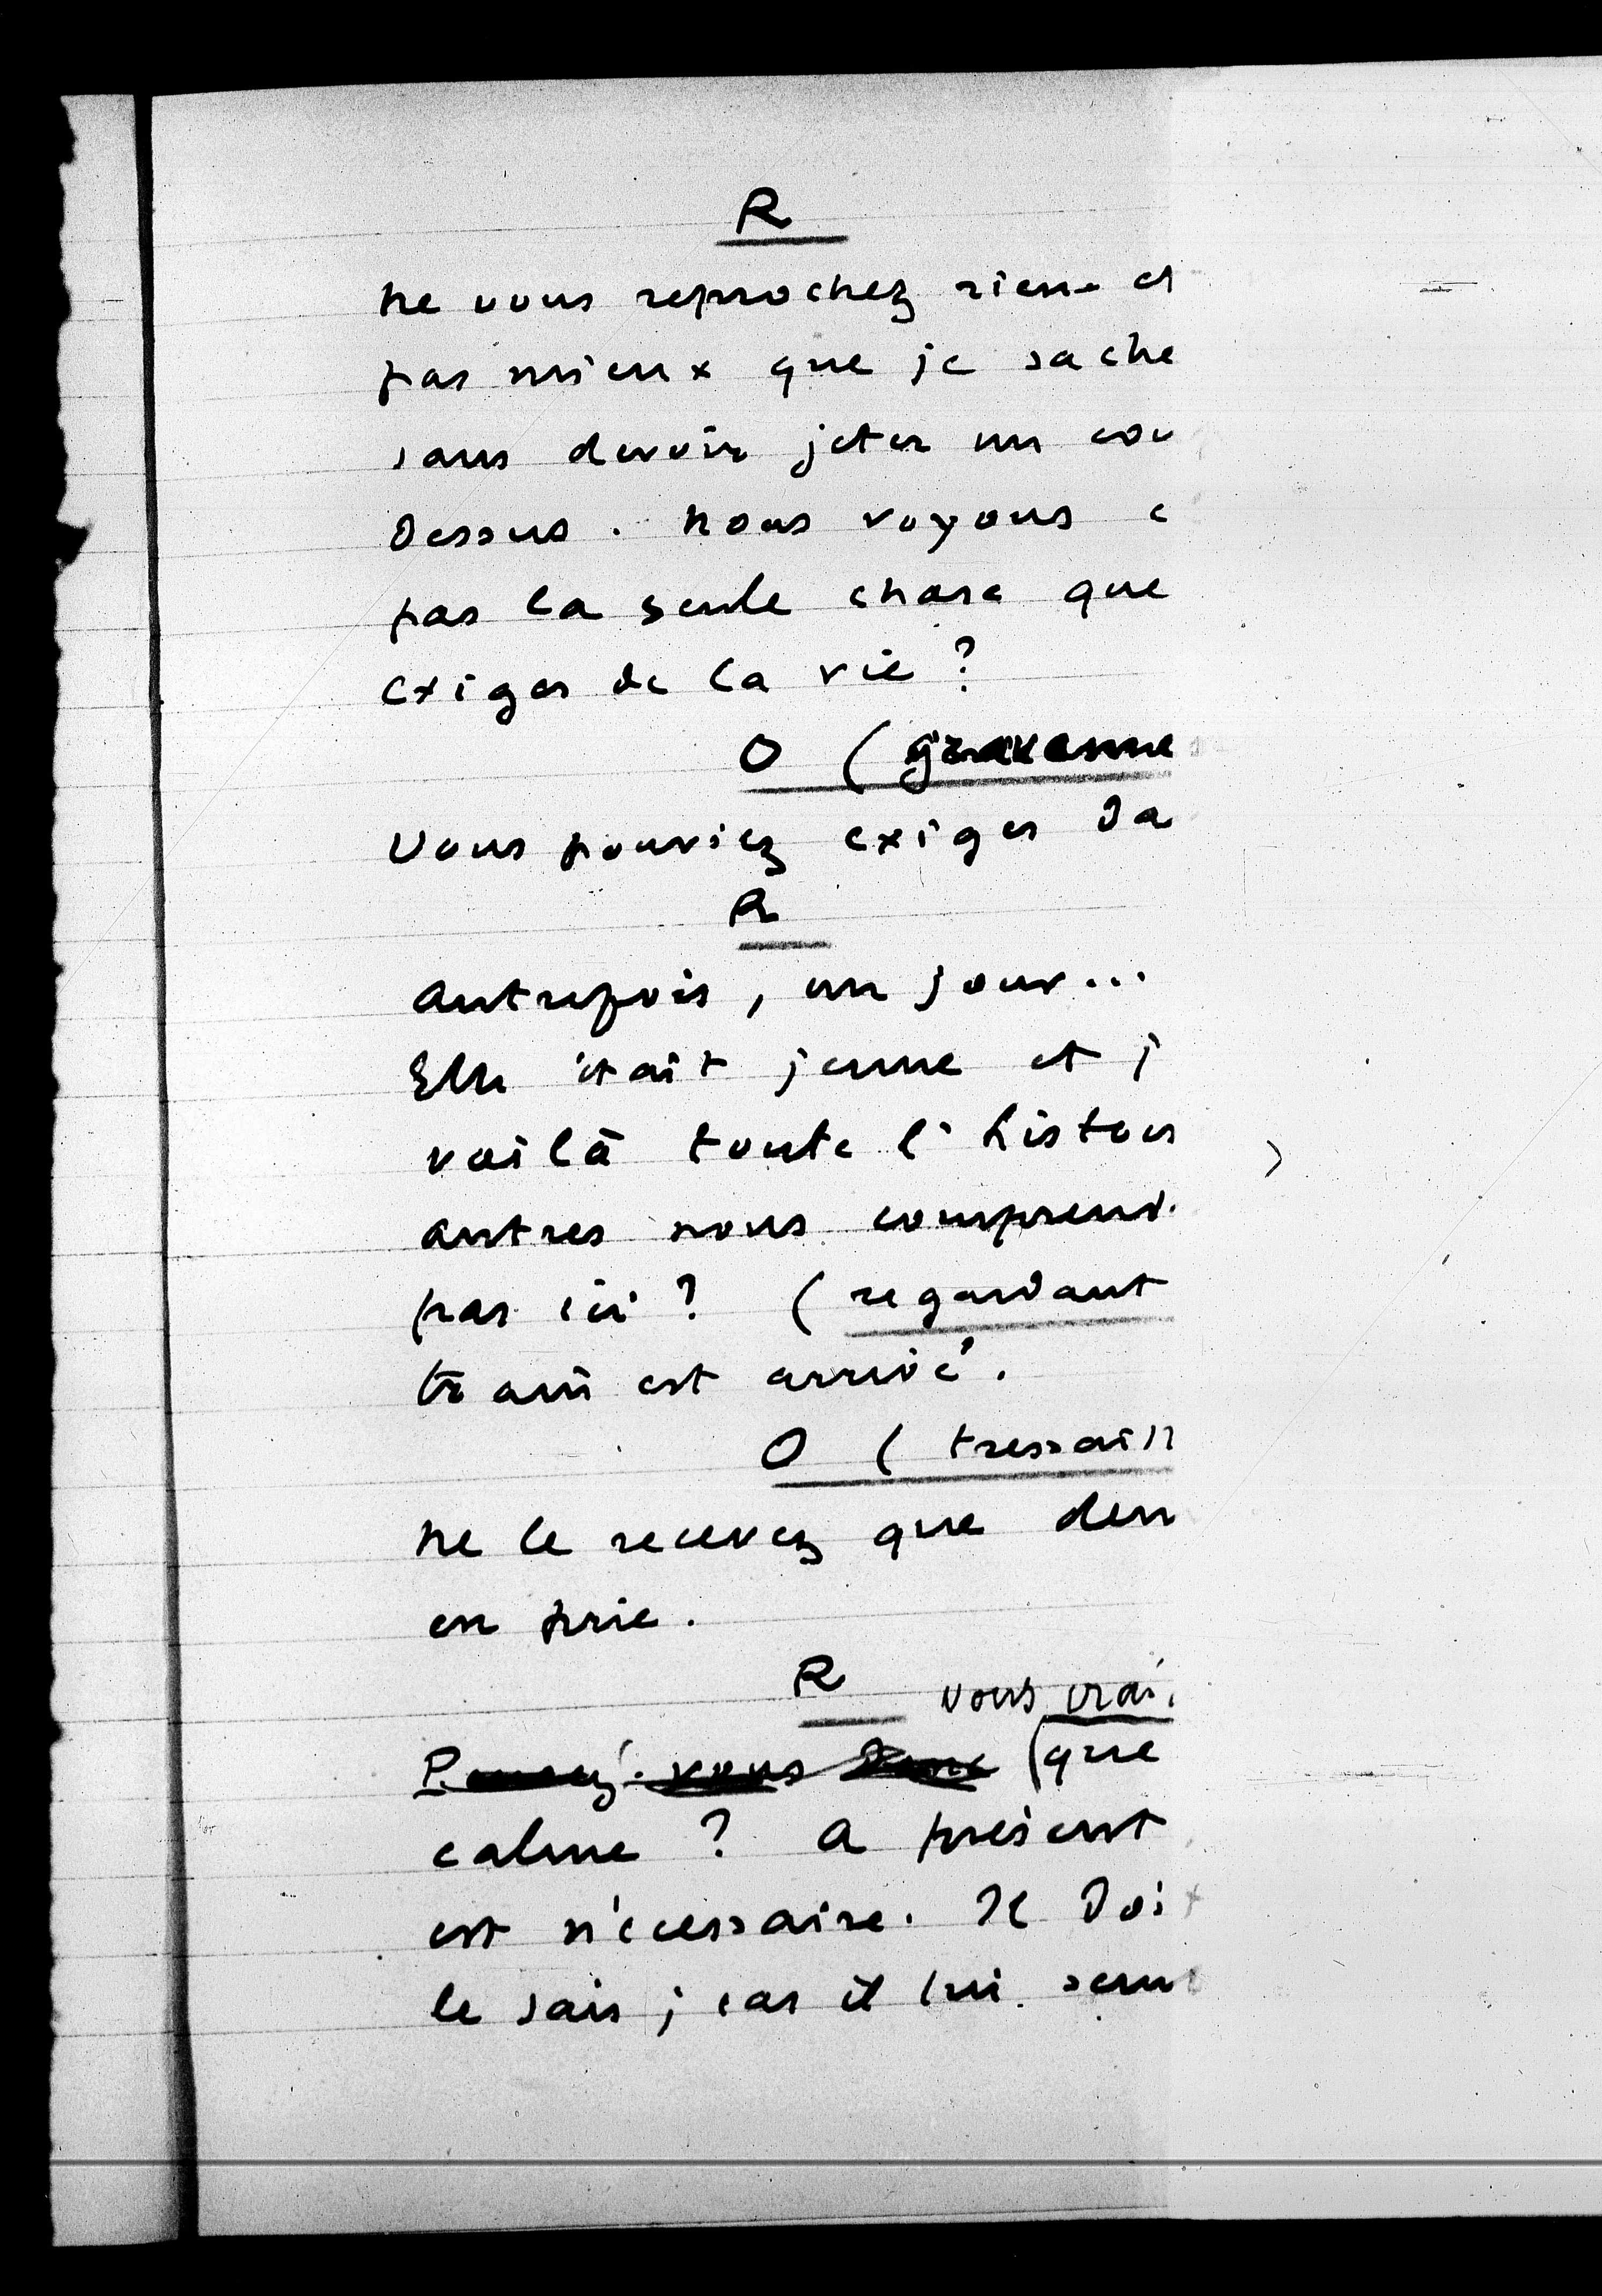 R
Ne vous reprochez rien et
pas mieux que je sache
sans devoir jeter un cou
dessus. Nous voyons c
pas la seule chose que
exiger de la vie ?
O (graveme
Vous pouviez exiger da
R
Autrefois, un jour...
Elle était jeune et j
voilà toute l'histoir
autres nous comprend
pas ici ? (regardant
train est arrivé.
O (tressaill
Ne le recevez que dem
en prie.
R
vous vrai
Pensez-vous donc (que
calme ? A présent
est nécessaire. Il doit
le sais ; car il lui sem